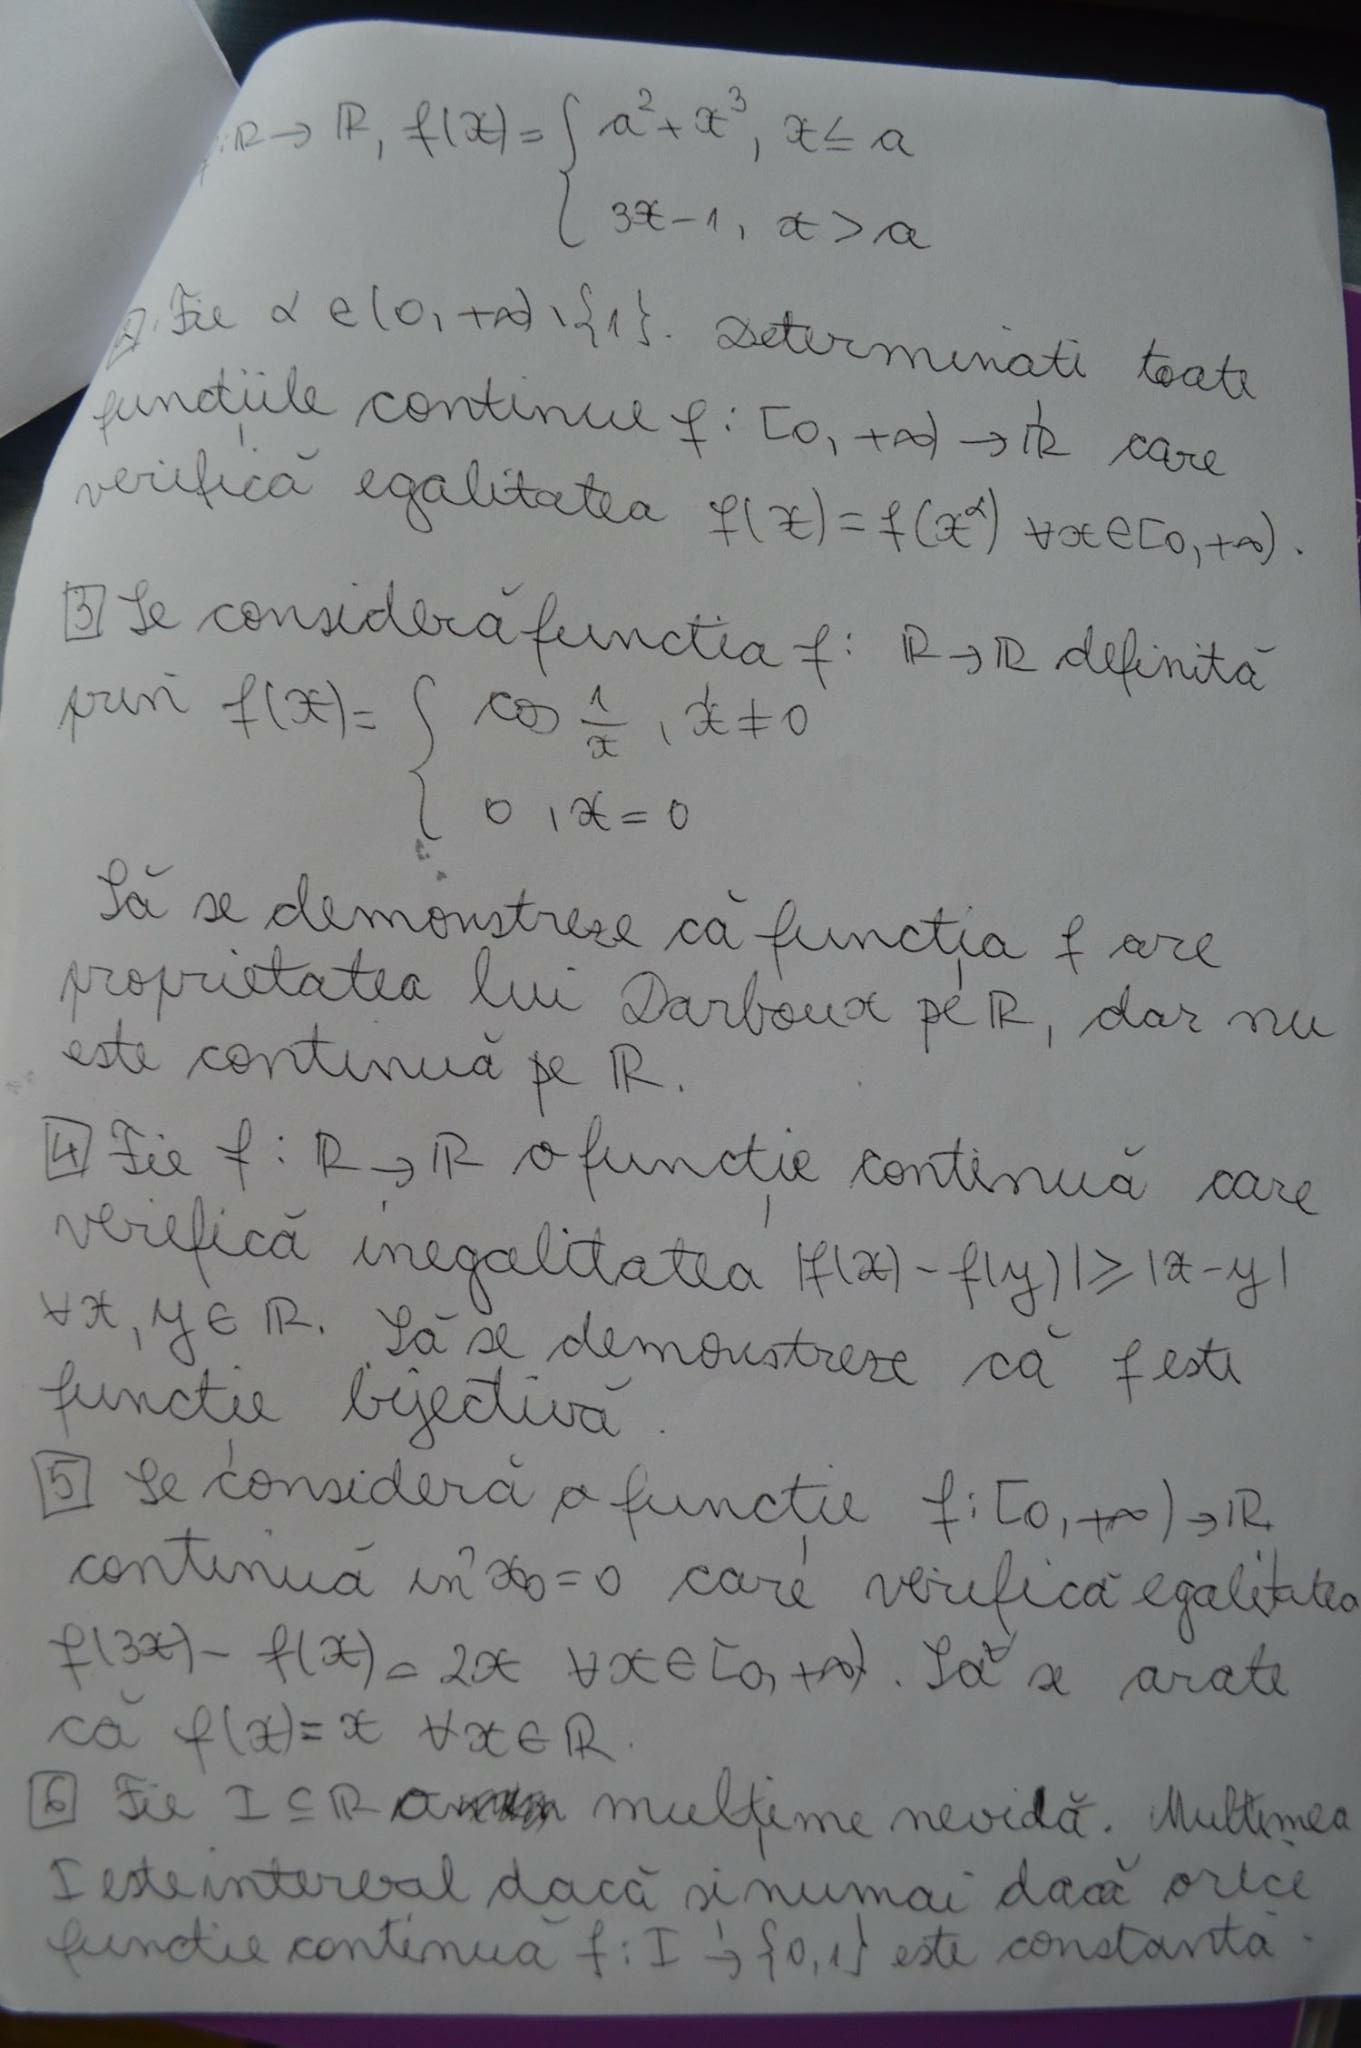 f:ℝ→ℝ, f(x)= { a²+x³, x≤a
3x-1, x>a
2. Fie α∈(0,+∞)\{1}. Determinati toate
funcțiile continue f:[0,+∞)→ℝ care
verifică egalitatea f(x)=f(x^α) ∀x∈[0,+∞).
3 Se consideră functia f: ℝ→ℝ definită
prin f(x)= { cos 1/x, x≠0
0, x=0
Să se demonstreze că funcția f are
proprietatea lui Darboux pe ℝ, dar nu
este continuă pe ℝ.
4 Fie f:ℝ→ℝ o funcție continuă care
verifică inegalitatea |f(x)-f(y)|≥|x-y|
∀x,y∈ℝ. Să se demonstreze că f este
funcție bijectivă.
5 Se consideră o funcție f:[0,+∞)→ℝ
continuă în x₀=0 care verifică egalitatea
f(3x)-f(x)=2x ∀x∈[0,+∞). Să se arate
că f(x)=x ∀x∈ℝ.
6 Fie I⊆ℝ o mulțime nevidă. Multimea
I este interval dacă si numai dacă orice
functie continuă f:I→{0,1} este constantă.